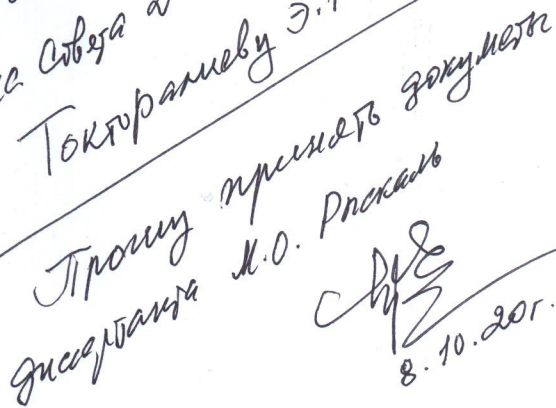 Совета
Токторалиеву Э.
Прошу принять документы
диссертанта М.О. Рыскаль
8.10.20г.